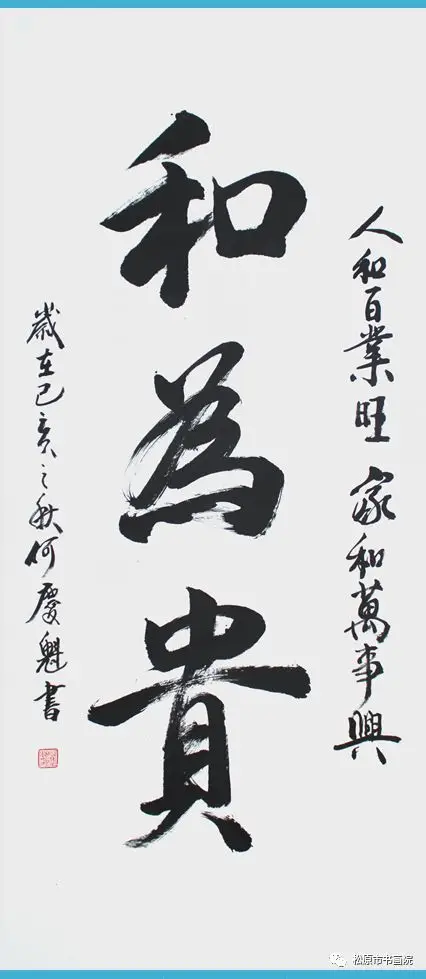 人和百業旺 家和萬事興
和為貴
歲在己亥之秋何慶魁書
松原市书画院